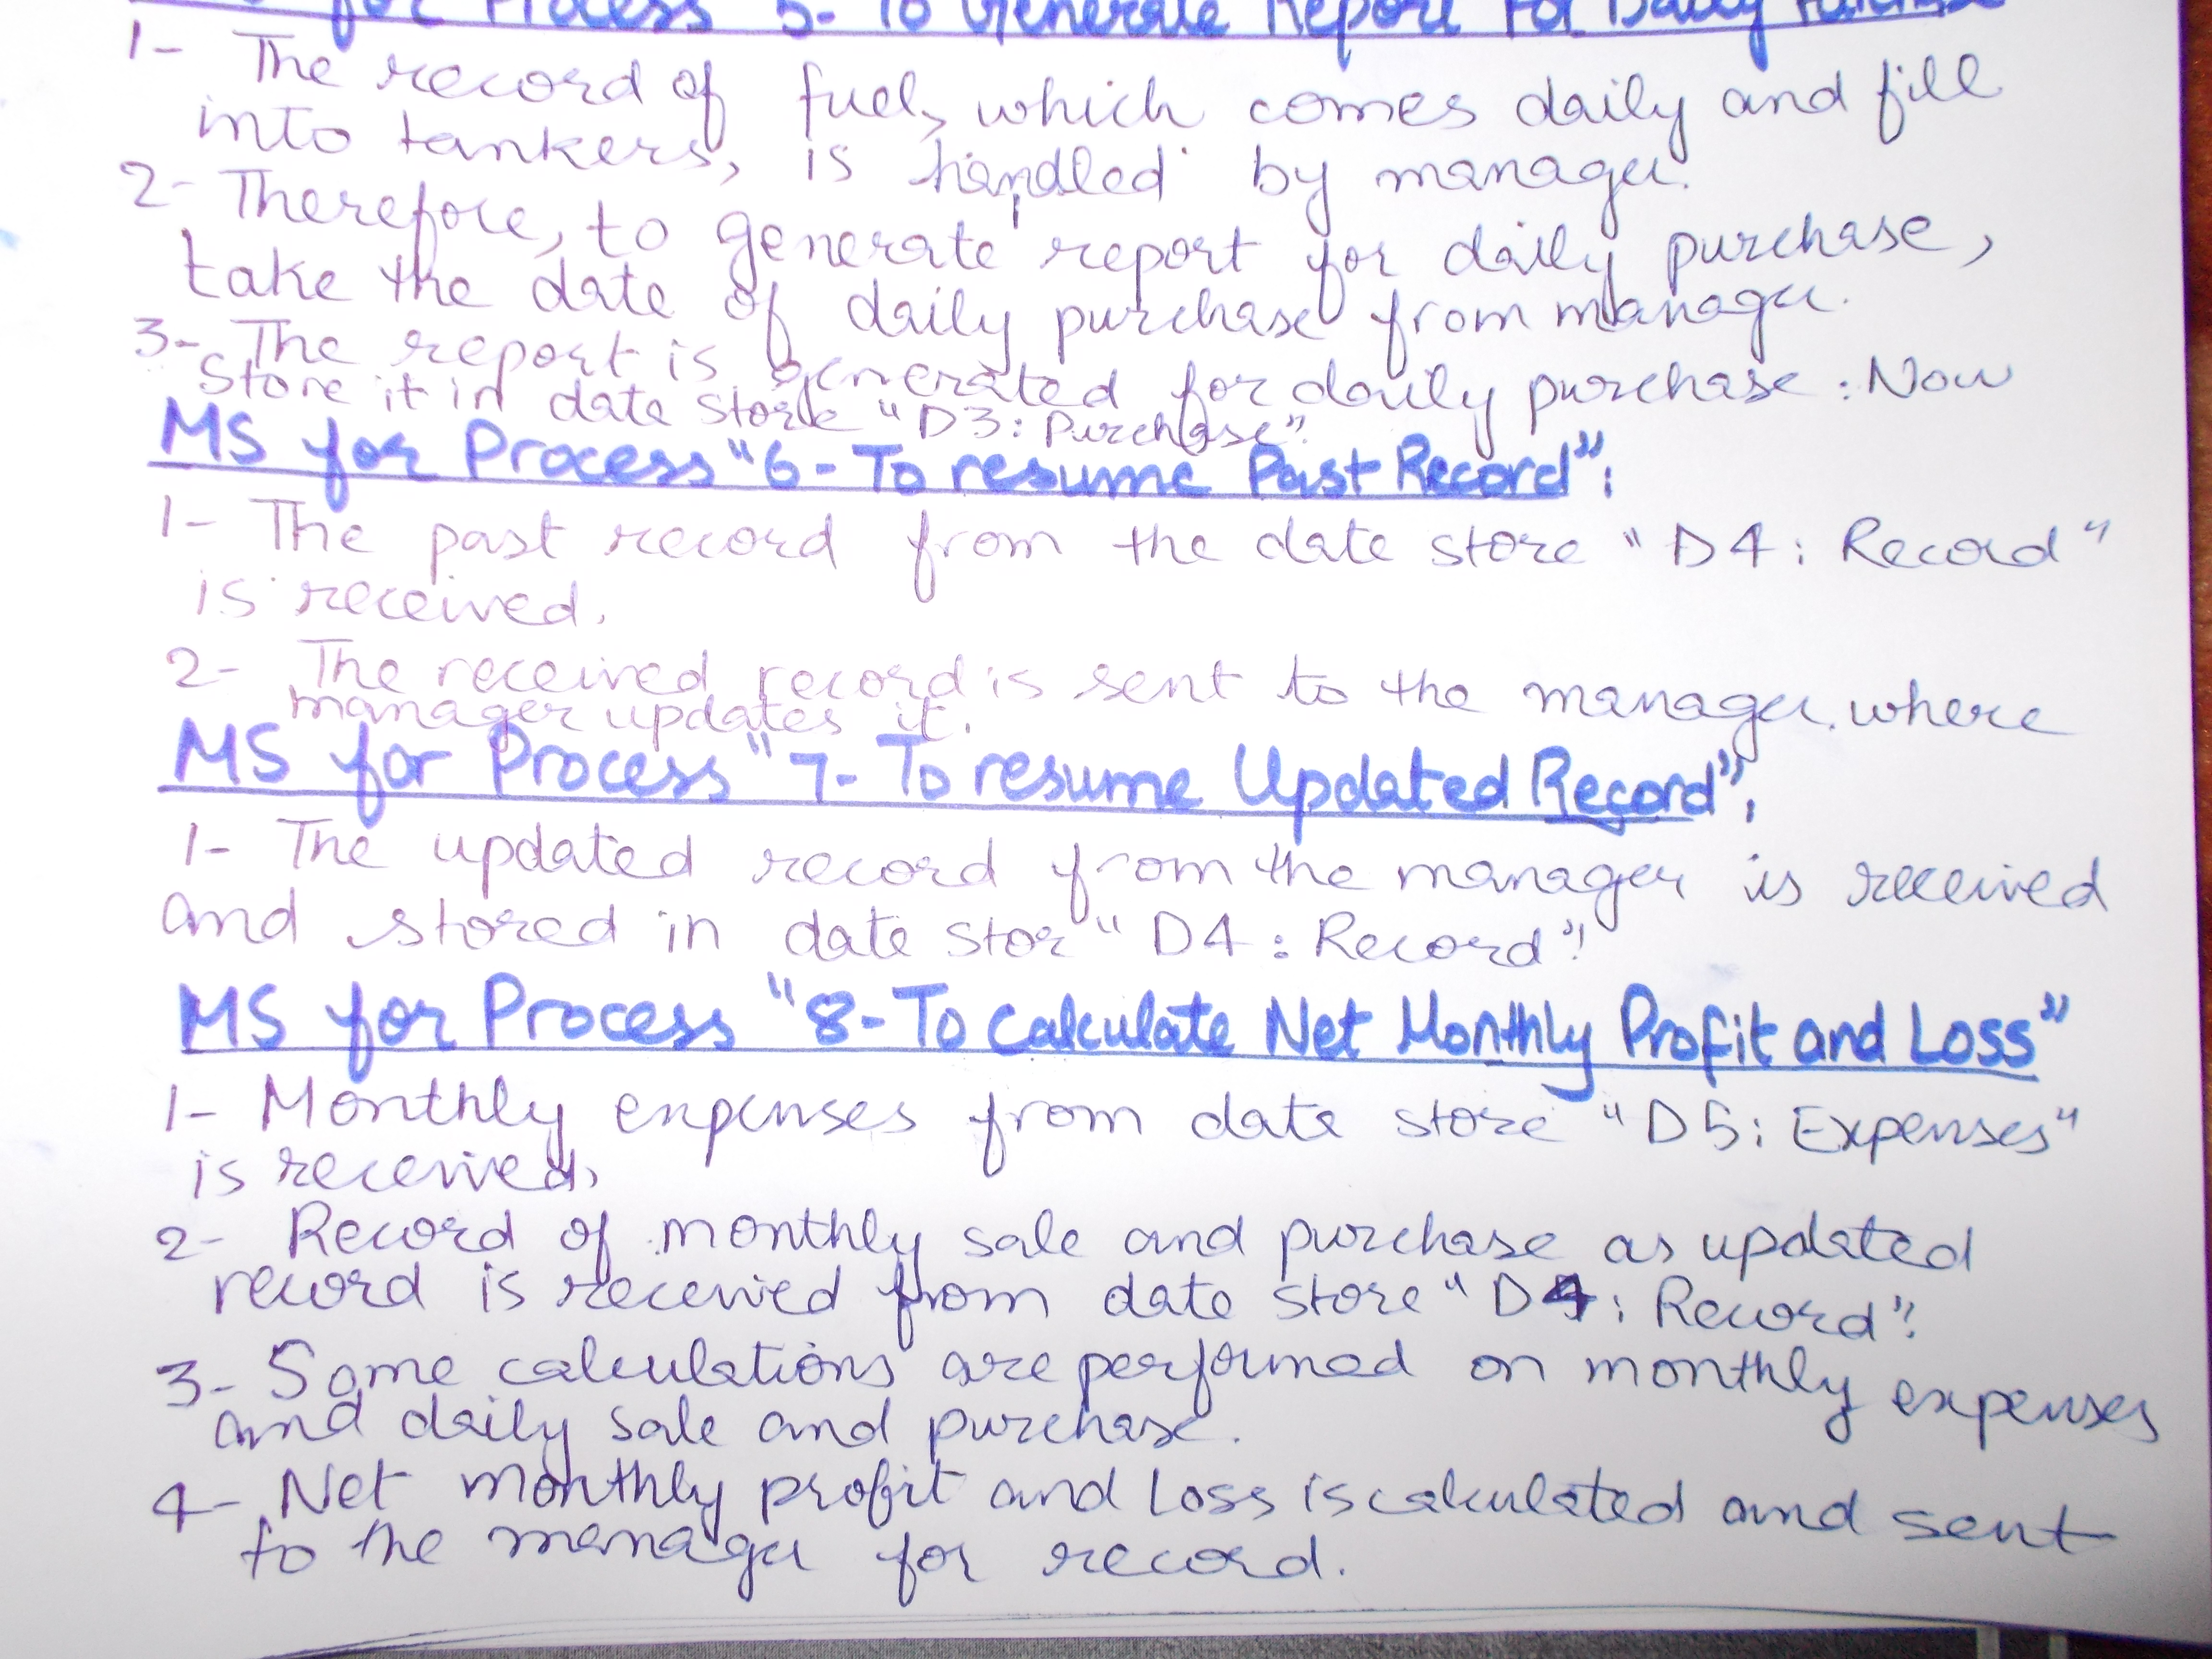 for Process 5- To Generate Report For Daily Purchase
1- The record of fuel, which comes daily and fill
into tankers, is handled by manager.
2- Therefore, to generate report for daily purchase,
take the date of daily purchase from manager.
3- The report is generated for daily purchase. Now
store it in date store "D3: Purchase".
MS for Process "6- To resume Past Record":
1- The past record from the date store "D4: Record"
is received.
2- The received record is sent to the manager. where
manager updates it.
MS for Process "7- To resume Updated Record":
1- The updated record from the manager is received
and stored in date stor "D4: Record".
MS for Process "8- To Calculate Net Monthly Profit and Loss"
1- Monthly expenses from date store "D5: Expenses"
is received.
2- Record of monthly sale and purchase as updated
record is received from date store "D4: Record".
3- Some calculations are performed on monthly expenses
and daily sale and purchase.
4- Net monthly profit and Loss is calculated and sent
to the manager for record.